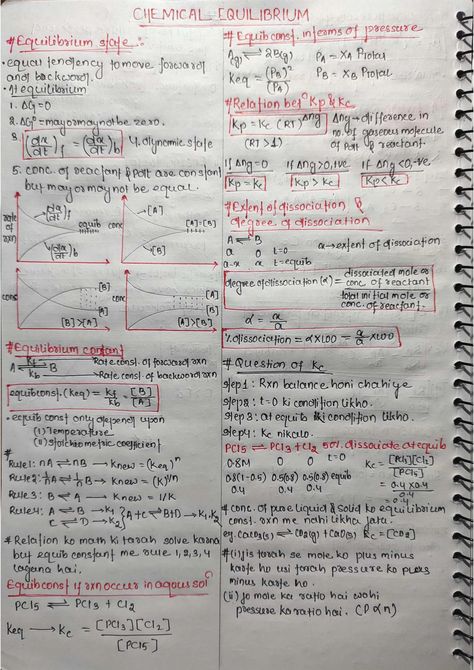 CHEMICAL EQUILIBRIUM
# Equilibrium state :-
• equal tendency to move forward
and backward.
• At equilibrium
1. ΔG=0
2. ΔG°= may or may not be zero.
3. (dx/dt)f = (dx/dt)b 4. dynamic state
5. conc. of reactant & pdt are constant
but may or may not be equal.
rate of rxn
(dx/dt)f
equib
(dx/dt)b
conc
[A]
[A]=[B]
[B]
conc
[B]
[A]
[B]>[A]
[A]
[B]
[A]>[B]
# Equilibrium constant
A ⇌ B
kf
kb
Rate const. of forward rxn
Rate const. of backward rxn
equib const. (Keq) = kf/kb = [B]/[A]
• equib const only depend upon
(i) Temperature
(ii) stoichiometric coefficient
#
Rule1: nA ⇌ nB → Knew = (Keq)^n
Rule2: 1/n A ⇌ 1/n B → Knew = (K)^1/n
Rule3: B ⇌ A → Knew = 1/K
Rule4: A ⇌ B → K1
C ⇌ D → K2 } A+C ⇌ B+D → K1.K2
# Relation ko math ki tarah solve karna
but equib constant me rule 1,2,3,4
lagana hai.
Equib const if rxn occur in aqous solⁿ
PCl5 ⇌ PCl3 + Cl2
Keq → Kc = [PCl3][Cl2]/[PCl5]
# Equib const. in terms of pressure
A(g) ⇌ 2B(g) PA = XA Ptotal
Keq = (PB)^n/(PA) PB = XB Ptotal
# Relation betⁿ Kp & Kc
Kp = Kc (RT)^Δng
(RT>1)
Δng → difference in
no. of gaseous molecule
of pdt & reactant.
if Δng=0 if Δng>0,+ve if Δng<0,-ve
Kp = Kc Kp > Kc Kp < Kc
# Extent of dissociation &
degree of dissociation
A ⇌ B α → extent of dissociation
a 0 t=0
a-x x t=equib
degree of dissociation (α) = dissociated mole or conc. of reactant / total initial mole or conc. of reactant.
α = x/a
% dissociation = α×100 = x/a ×100
# Question of Kc
step1: Rxn balance honi chahiye
step2: t=0 ki condition likho.
step3: at equib ki condition likho.
step4: Kc nikalo.
PCl5 ⇌ PCl3 + Cl2 50% dissociate at equib
0.8M 0 0 t=0
0.8(1-0.5) 0.5(0.8) 0.5(0.8) equib
0.4 0.4 0.4
Kc = [PCl3][Cl2]/[PCl5]
= 0.4×0.4/0.4
= 0.4
# conc. of pure liquid & solid ko equilibrium
const. rxn me nahi likha jata.
eg. CaCO3(s) ⇌ CO2(g) + CaO(s) Kc = [CO2]
# (i) is tarah se mole ko plus minus
karte ho usi tarah pressure ko plus
minus karte ho.
(ii) Jo mole ka ratio hai wohi
pressure ka ratio hai. (P∝n)